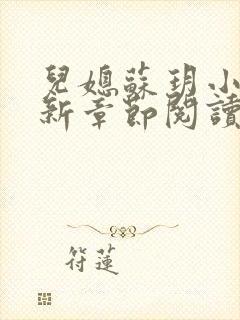 兒媳蘇玥小
新章節閱讀
符蓮